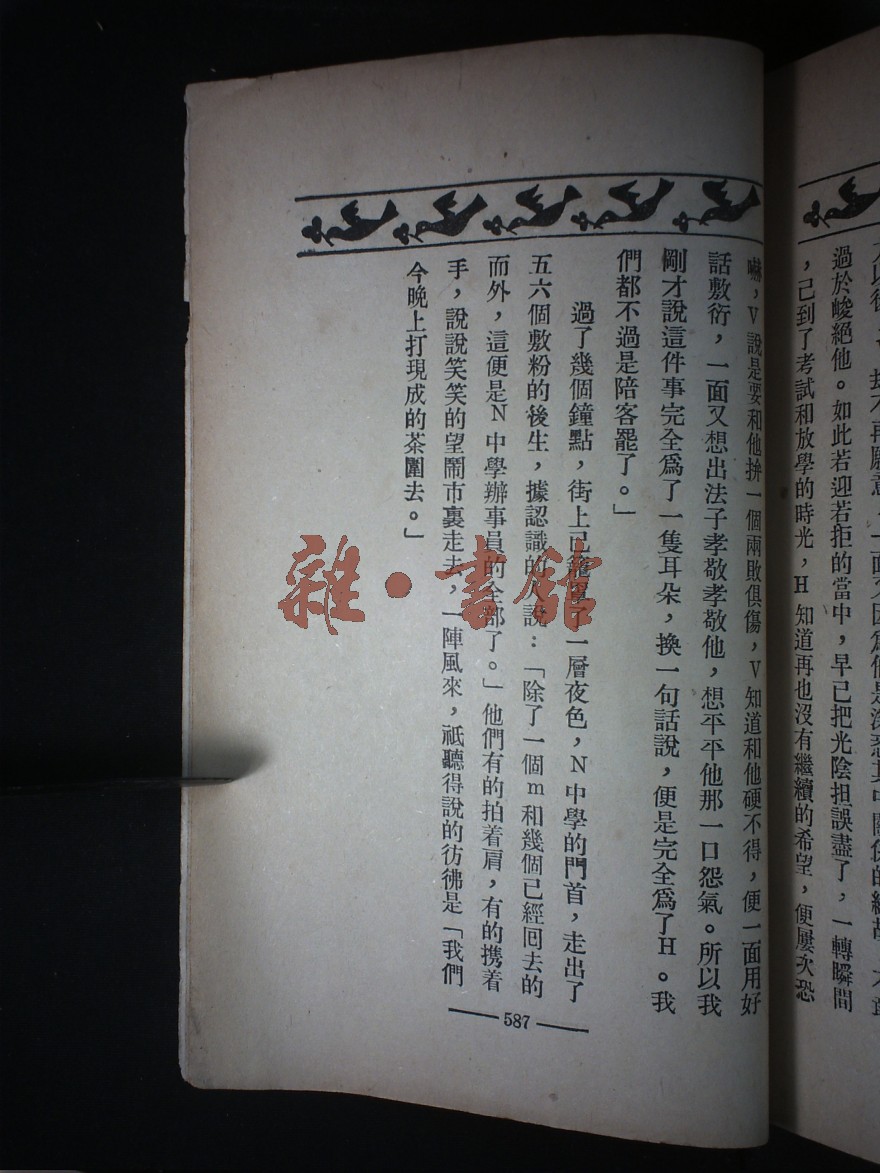 過於峻絕他。如此若迎若拒的當中，早已把光陰担誤盡了，一轉瞬間
，已到了考試和放學的時光，H知道再也沒有繼續的希望，便屢次恐
嚇，V說是要和他拚一個兩敗俱傷，V知道和他硬不得，便一面用好
話敷衍，一面又想出法子孝敬孝敬他，想平平他那一口怨氣。所以我
剛才說這件事完全爲了一隻耳朵，換一句話說，便是完全爲了H。我
們都不過是陪客罷了。」
過了幾個鐘點，街上已籠罩了一層夜色，N中學的門首，走出了
五六個敷粉的後生，據認識的人說：「除了一個m和幾個已經囘去的
而外，這便是N中學辦事員的全部了。」他們有的拍着肩，有的携着
手，說說笑笑的望鬧市裏走去，一陣風來，祗聽得說的彷彿是「我們
今晚上打現成的茶圍去。」
587
雜·書館